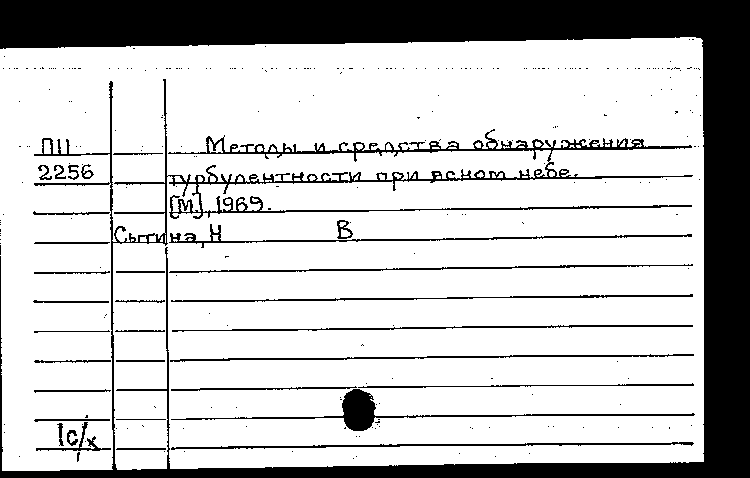 П11 Методы и средства обнаружения
2256 турбулентности при ясном небе.
[М], 1969.
Сытина, Н В
1с/х